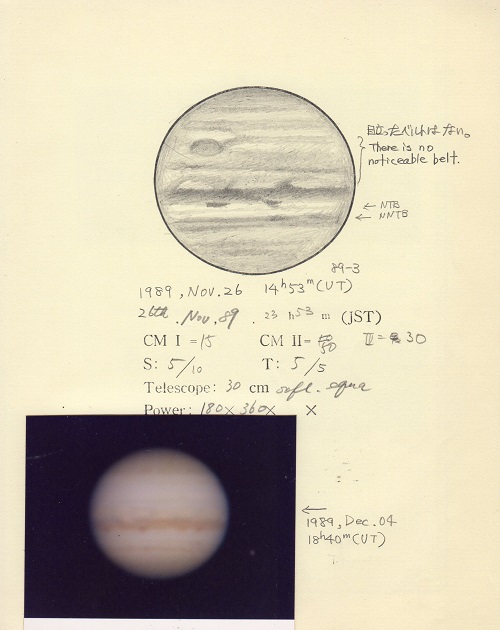 目立ったベルトはない。
There is no
noticeable belt.
← NTB
← NNTB
89-3
1989, Nov. 26 14ʰ53ᵐ(UT)
26th. Nov. 89. 23 h 53 m (JST)
CM I = 15 CM II = 50 III = 30
S: 5/10 T: 5/5
Telescope: 30 cm refl. equa
Power: 180× 360× ×
←
1989, Dec. 04
18ʰ40ᵐ(UT)